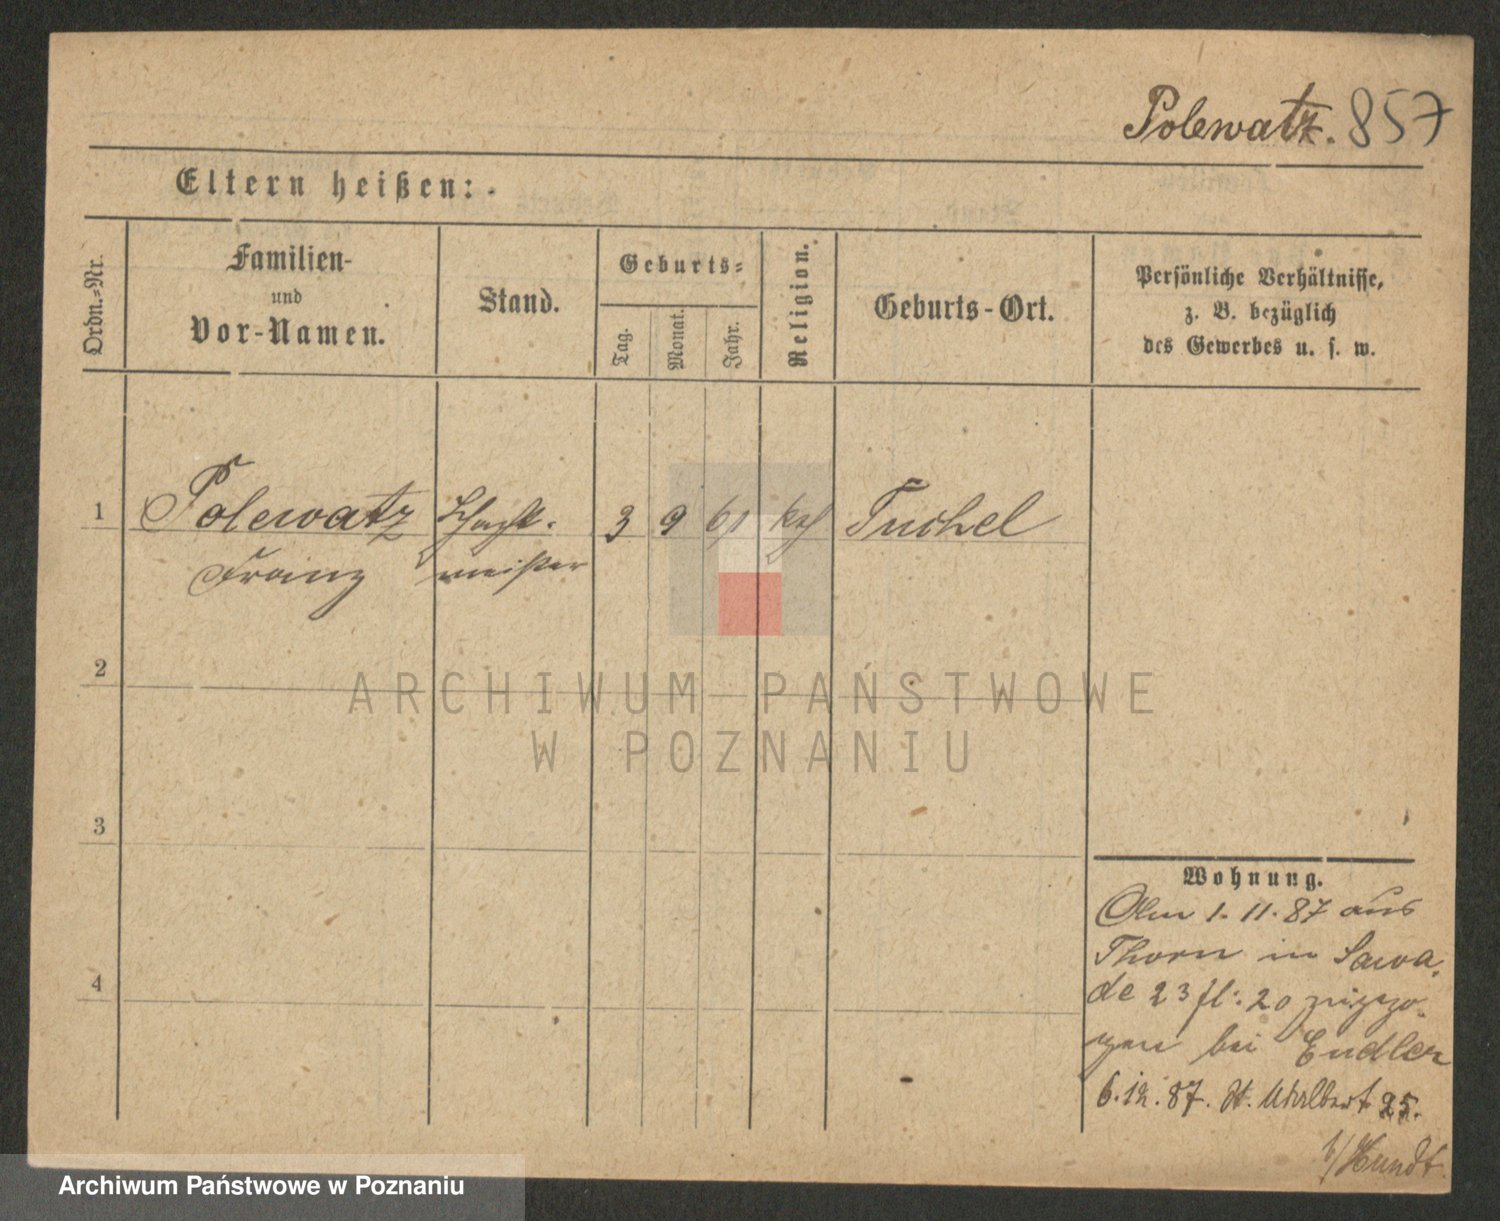 Polewatz. 857
Eltern heißen:
Ordn.-Nr.
Familien-
und
Vor-Namen.
Stand.
Geburts-
Tag.
Monat.
Jahr.
Religion.
Geburts-Ort.
Persönliche Verhältnisse,
z. B. bezüglich
des Gewerbes u. s. w.
1 Polewatz Schacht- 3 9 61 kth Tuchel
Franz meister
2
ARCHIWUM PAŃSTWOWE
W POZNANIU
3
Wohnung.
1. 11. 87 aus
Thorn in Sawa-
4
de 23 fl: 20 zugezo-
gen bei Endler
6.12.87. St. Adalbert 25.
b/Hundt.
Archiwum Państwowe w Poznaniu